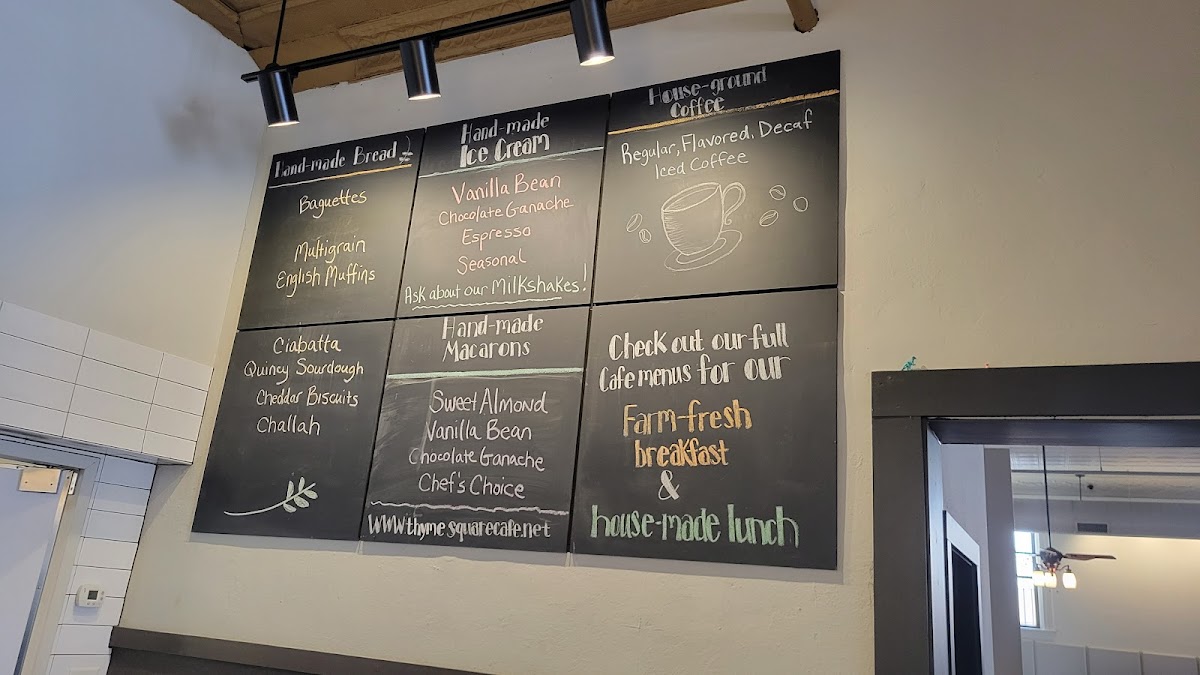 Hand-made Bread
Baguettes
Multigrain
English Muffins
Ciabatta
Quincy Sourdough
Cheddar Biscuits
Challah
Hand-made
Ice Cream
Vanilla Bean
Chocolate Ganache
Espresso
Seasonal
Ask about our Milkshakes!
Hand-made
Macarons
Sweet Almond
Vanilla Bean
Chocolate Ganache
Chef's Choice
www.thymesquarecafe.net
House-ground
Coffee
Regular, Flavored, Decaf
Iced Coffee
Check out our full
Cafe menus for our
Farm-fresh
breakfast
&
house-made lunch